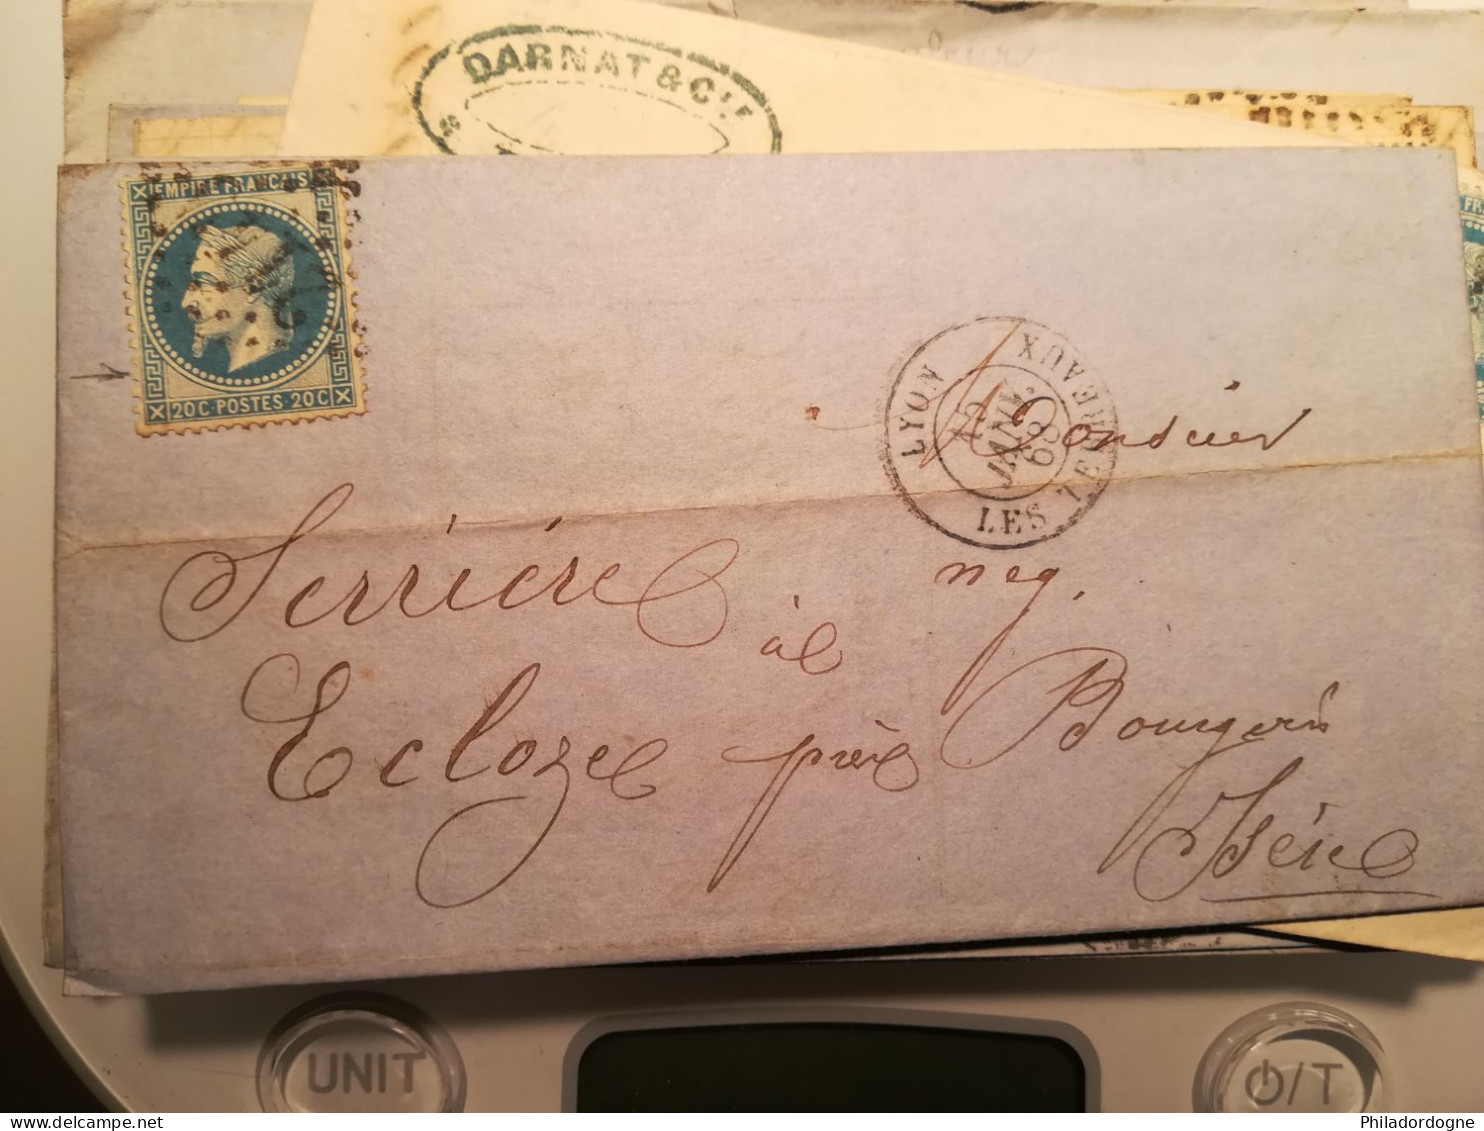 DARNAT & CIE
EMPIRE FRANCAIS
20C POSTES 20C
LYON
LES TERREAUX
15
JANV.
68
Monsieur
Serriére neg.
à
Ecloze près Bourgoin
Isére
UNIT
/T
Philadordogne